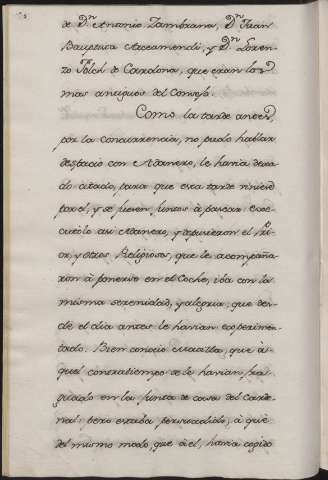 de Dⁿ Antonio Zambrana, Dⁿ Juan
Bauptista Accamendi, y Dⁿ Loren-
zo Folch de Cardona, que eran los
mas antiguos del Consejo.
Como la tarde antes,
por la concurrencia, no pudo hablar
despacio con Adanero, le havia dexa-
do citado, para que esta tarde viniese
por el, y se fuesen juntos à pasear. Exe-
cutòlo asi Adanero, y
or, y otros Religiosos, que le acompaña-
ron à ponerse en el Coche, iba con la
misma serenidad, y alegria, que des-
de el dia antes le havian experimen-
tado. Bien conociò que a-
quel contratiempo se le havian fra-
guado en la Junta de casa del Carde-
nal; pero estaba persuadido, à que
del mismo modo, que à el, havia cogido